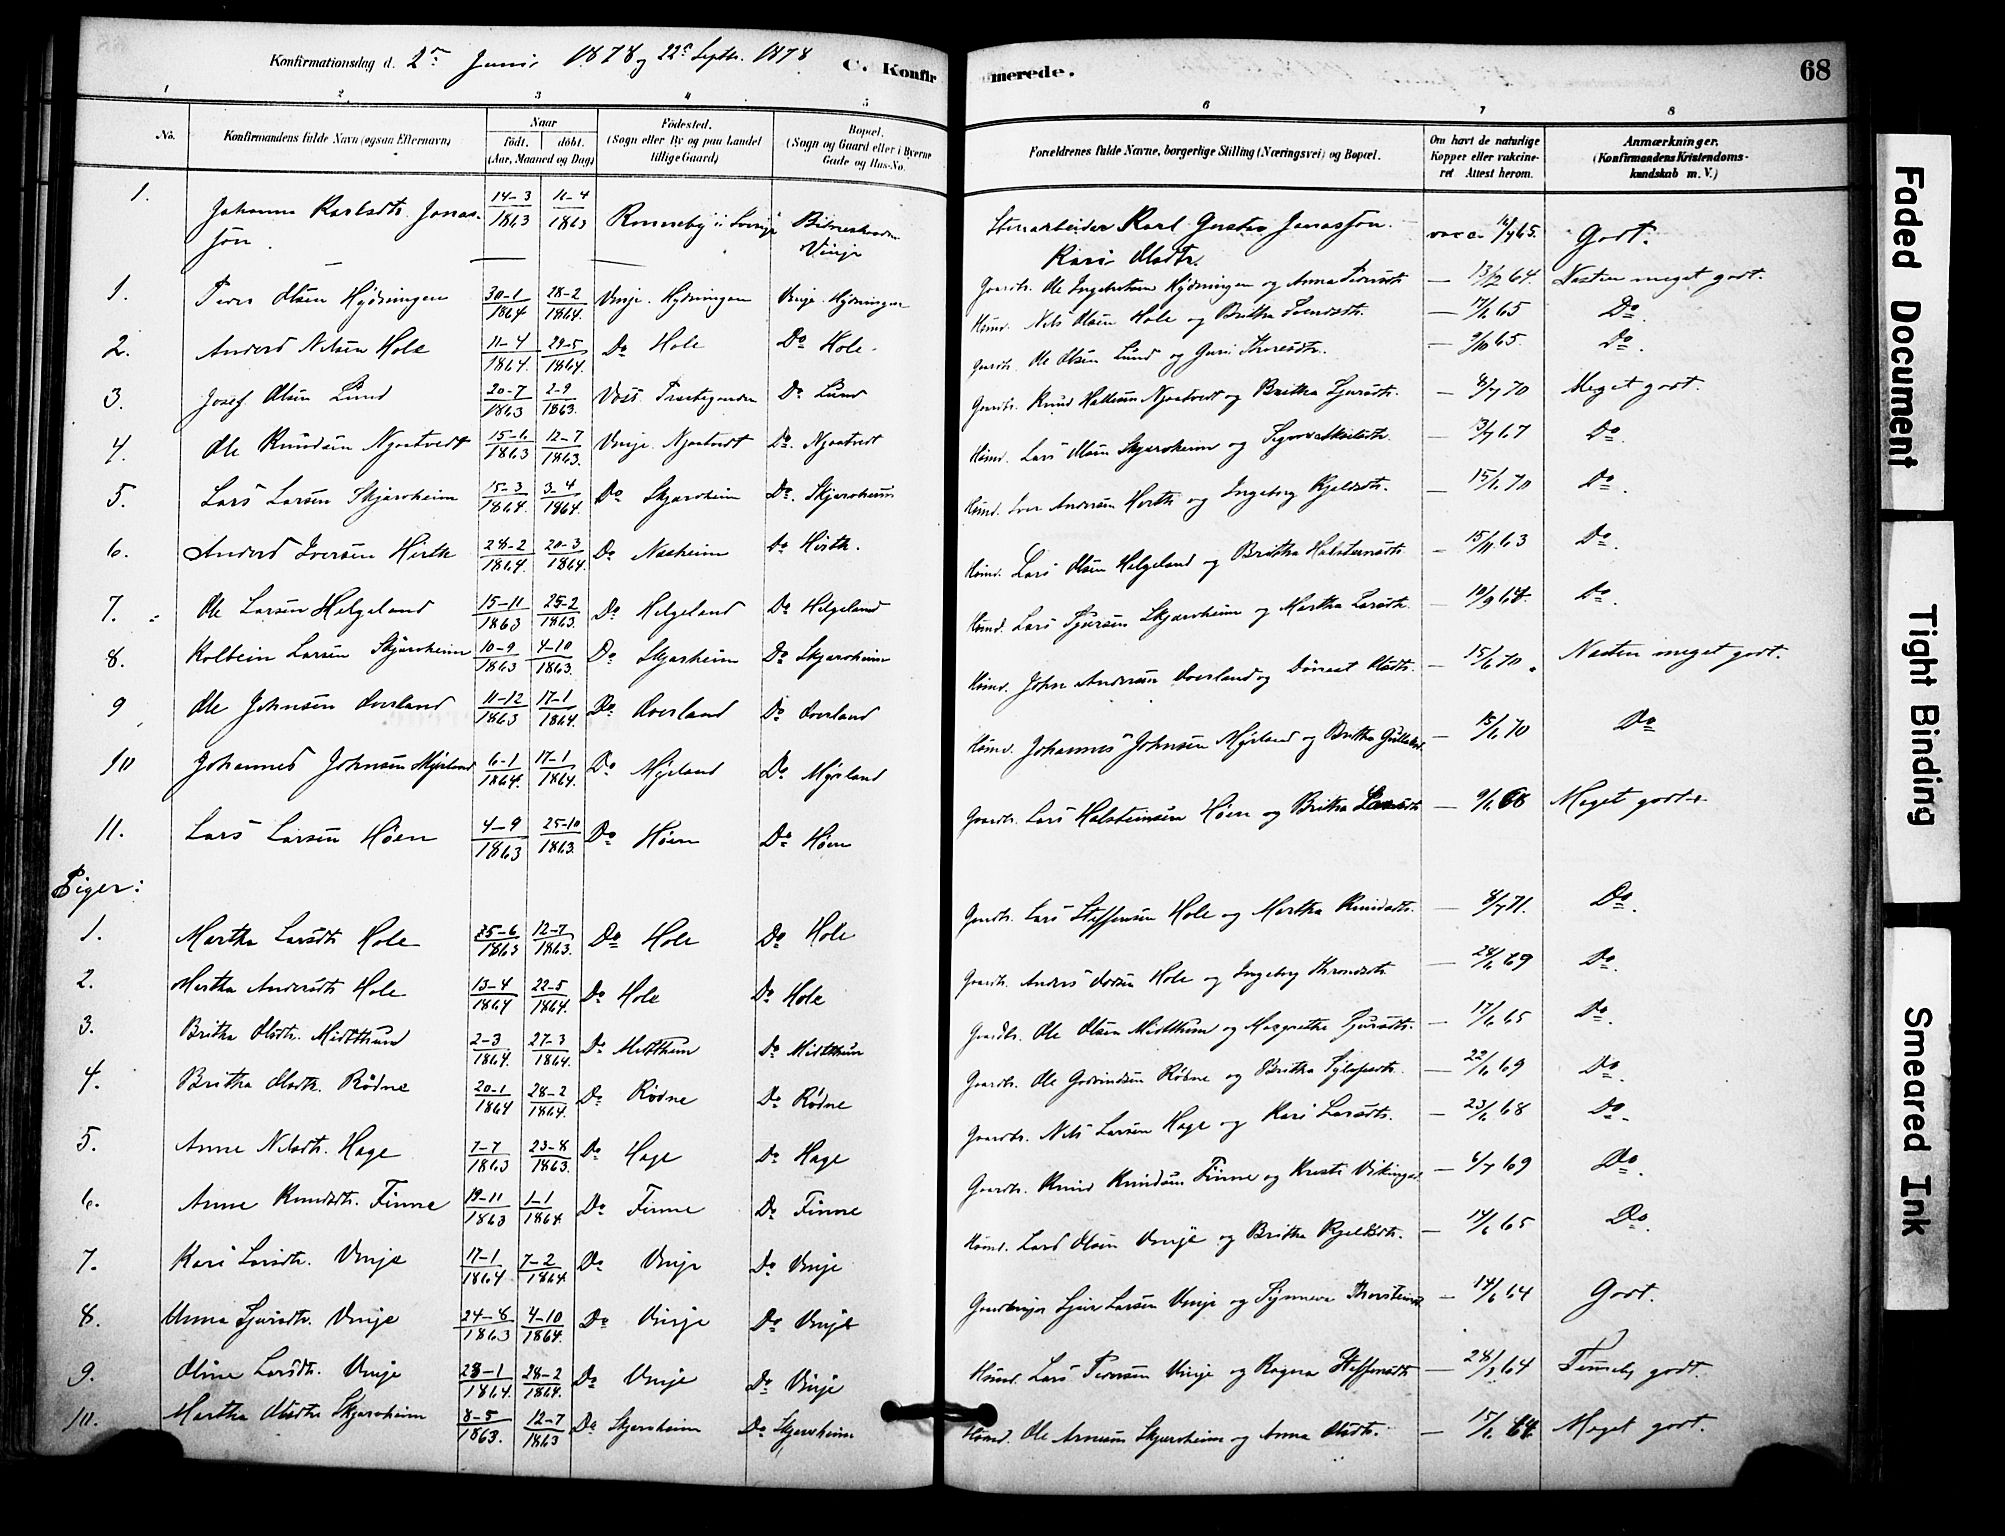 Konfirmationsdag d. 2den Juni 1878 og 22de Septbr. 1878
C. Konfirmerede.
68
1 2 3 4 5 6 7 8
No. Konfirmandens fulde Navn (ogsaa Efternavn) Naar født. døbt. (Aar, Maaned og Dag) Fødested. (Sogn eller By og paa Landet tillige Gaard) Bopæl. (Sogn og Gaard eller i Byerne Gade og Hus-No. Forældrenes fulde Navne, borgerlige Stilling (Næringsvei) og Bopæl. Om havt de naturlige Kopper eller vakcineret Attest herom. Anmærkninger. (Konfirmandens Kristendomskundskab m. V.)
1. Johanna Karlsdtr. Jonasson. 14-3 1863 11-4 1863 Ronneby i Sverige Vinje Stenarbeider Karl Gustav Jonasson. Kari Olsdtr. vacc. 65. Godt.
1. Peder Olsen Hydningen 30-1 1864 28-2 1864. Vinje. Hydningen Vinje. Hydningen Gaardbr. Ole Ingebretsen Hydningen og Anna Pedersdtr. — 13/2 64. Næsten meget godt.
2. Anders Nilsen Hole 11-4 1864. 29-5 1864. Do Hole Do Hole. Husmd. Nils Olsen Hole og Britha Sveindsdtr. — 65 Do.
3. Josef Olsen Lund 20-7 1863 2-9 1863. Voss. Do Lund Gaardbr. Ole Olsen Lund og Guri — 65. Do.
4. Ole Knudsen Njaatvedt 15-6 1863 12-7 1863. Vinje. Njaatvedt Do. Njaatvedt Gaardbr. Knud Hallesen Njaatvedt og Britha Sjursdtr. — 8/7 70 Meget godt.
5. Lars Larsen Skjærsheim 15-3 1864. 3-4 1864. Do Skjærsheim Do. Skjærsheim Husmd. Lars Olsen Skjærsheim og — 67 Do.
6. Anders Iversen Hirth 28-2 1864. 20-3 1864. Do Næsheim Do Hirth. Husmd. Iver Andersen Hirth og Ingeborg Kjelsdtr. — 15/6 70 Do.
7. Ole Larsen Helgeland 15-11 1863 25-2 1863. Do Helgeland Do Helgeland Husmd. Lars Olsen Helgeland og Britha Halsteinsdtr. — 63 Do.
8. Kolbein Larsen Skjærsheim 10-9 1863 4-10 1863. Do Skjærsheim Do Skjærsheim Husmd. Lars Sjursen Skjærsheim og Martha Larsdtr. — 10/9 64. Do.
9 Ole Johnsen Overland 11-12 1863 17-1 1864. Do Overland Do Overland Husmd. John Andersen Overland og Olsdtr. — 15/6 70. Næsten meget godt.
10 Johannes Johnsen Myrland 6-1 1864. 17-1 1864. Do Myrland Do Myrland Husmd. Johannes Johnsen Myrland og Britha — 15/6 70 Do
11. Lars Larsen Høen 4-9 1863 25-10 1863. Do Høen Do Høen Gaardbr. Lars Halsteinsen Høen og Britha Larsdtr. — 9/6 68 Meget godt.
Piger:
1. Martha Larsdtr. Hole 25-6 1863 12-7 1863. Do Hole Do Hole Gaardbr. Lars Steffensen Hole og Martha Knudsdtr. — 8/7 71. Do.
2. Martha Andersdtr. Hole 13-4 1864 22-5 1864. Do Hole Do Hole Gaardbr. Anders Hole og Ingeborg Throndsdtr. — 69 Do.
3. Britha Olsdtr. Midtthun 2-3 1864. 27-3 1864. Do Midtthun Do Midtthun Gaardbr. Ole Olsen Midtthun og Margretha Sjursdtr. — 17/6 65 Do.
4. Britha Olsdtr. Rødne 20-1 1864 28-2 1864. Do Rødne Do Rødne Gaardbr. Ole Godvindsen Rødne og Britha — 22/6 69 Do.
5. Anne Nilsdtr. Hage 7-7 1863 23-8 1863. Do Hage Do Hage Gaardbr. Nils Larsen Hage og Kari Larsdtr. — 23/6 68 Do.
6. Anne Knudsdtr. Finne 19-11 1863 1-1 1864 Do Finne Do Finne Gaardbr. Knud Knudsen Finne og — 6/7 69 Do.
7. Kari Larsdtr. Vinje 17-1 1864 7-2 1864 Do Vinje Do Vinje Husmd. Lars Olsen Vinje og Britha Kjelsdtr. — 14/6 65 Do.
8. Anna Sjursdtr. Vinje 24-8 1863 4-10 1864. Do Vinje Do Vinje Gaardbruger Sjur Larsen Vinje og Synneva Thorsteinsd. — 14/6 64 Godt.
9. Oline Larsdtr. Vinje 23-1 1864. 28-2 1864. Do Vinje Do Vinje Husmd. Lars Pedersen Vinje og Ragna Steffensdtr. — 64 Temmelig godt.
10. Martha Olsdtr. Skjærsheim 8-5 1863. 12-7 1863 Do Skjærsheim Do Skjærsheim Husmd. Ole Arnesen Skjærsheim og Anna Olsdtr. — 15/6 64. Meget godt.
Faded Document
Tight Binding
Smeared Ink